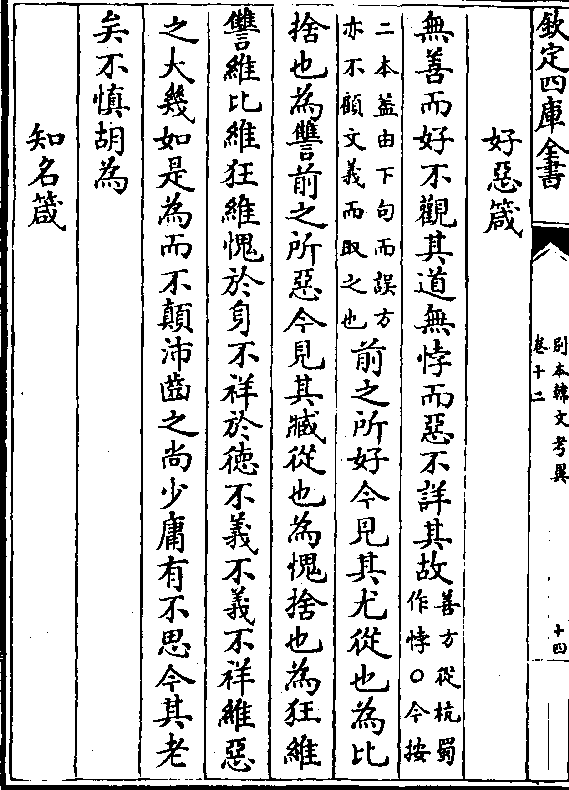 欽定四庫全書
別本韓文考異
卷十二
十四
好惡箴
無善而好不觀其道無悖而惡不詳其故善方從杭蜀作悖○今按
二本葢由下句而誤方亦不顧文義而取之也前之所好今見其尤從也為比
捨也為讐前之所惡今見其臧從也為愧捨也為狂維
讐維比維狂維愧於身不祥於德不義不義不祥維惡
之大幾如是為而不顛沛齒之尚少庸有不思今其老
矣不慎胡為
知名箴